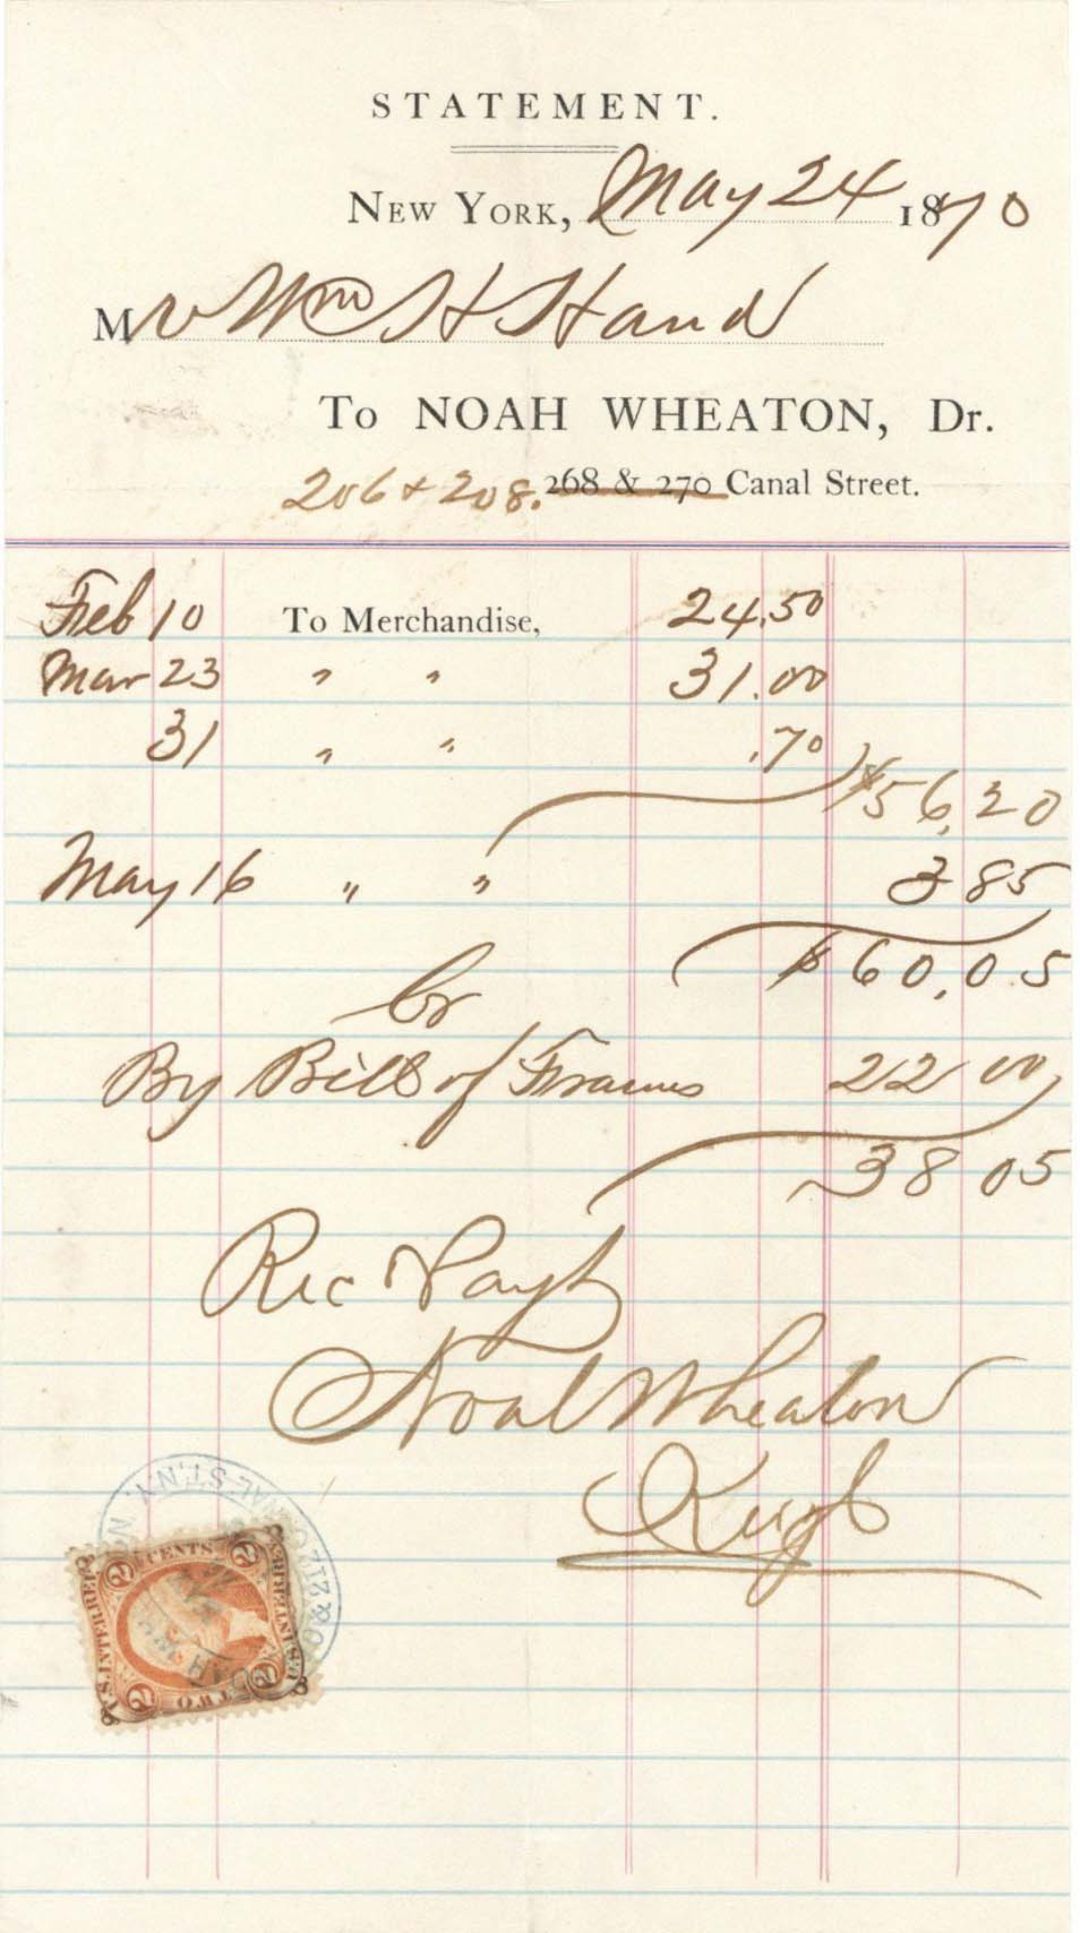 STATEMENT.
NEW YORK, May 24 1870
Mr Wm H Hand
To NOAH WHEATON, Dr.
206 & 208. 268 & 270 Canal Street.
Feb 10 To Merchandise, 24.50
Mar 23 " " 31.00
31 " " .70
$56.20
May 16 " " 3 85
$60.05
Cr
By Bill of Frames 22 00
38 05
Rec Payt
Noah Wheaton
CANAL ST. N.Y.
U.S. INTER. REV.
2 CENTS 2
2 TWO 2
NOAH